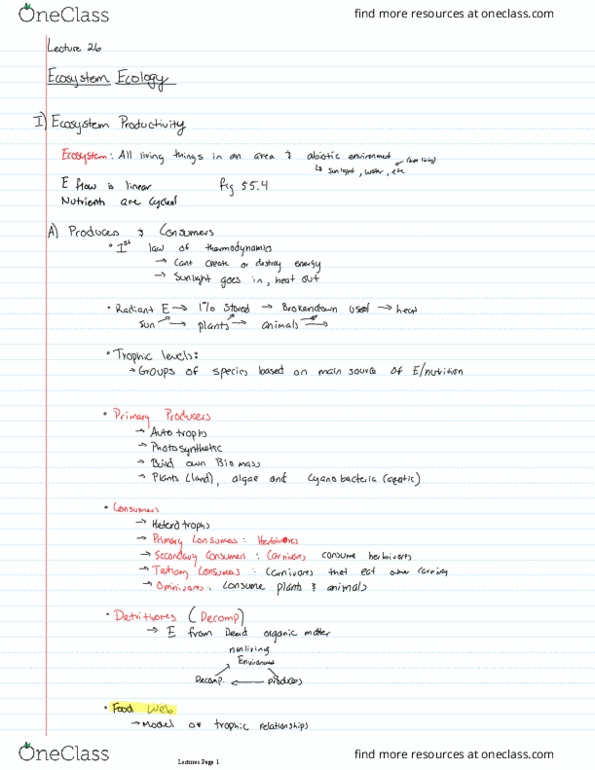 OneClass
find more resources at oneclass.com
Lecture 26
Ecosystem Ecology
I) Ecosystem Productivity
Ecosystem: All living things in an area & abiotic environment
↳ sunlight, water, etc
E flow is linear fig 55.4
Nutrients are cycled
A) Producers & Consumers
• 1st law of thermodynamics
→ Cant create or destroy energy
→ Sunlight goes in, heat out
• Radiant E → 1% Stored → Brokendown used → heat
Sun → plants → animals →
• Trophic levels:
→ Groups of species based on main source of E/nutrition
• Primary Producers
→ Autotrophs
→ Photosynthetic
→ Build own Biomass
→ Plants (land), algae and Cyanobacteria (aquatic)
• Consumers
→ Heterotrophs
→ Primary Consumers: Herbivores
→ Secondary Consumers: Carnivores consume herbivores
→ Tertiary Consumers: Carnivores that eat other carnivores
→ Omnivores: Consume plants & animals
• Detritivores (Decomp)
→ E from Dead organic matter
nonliving
Environment
Decomp. ← producers
• Food Web
→ Model of trophic relationships
OneClass
Lectures Page 1
find more resources at oneclass.com